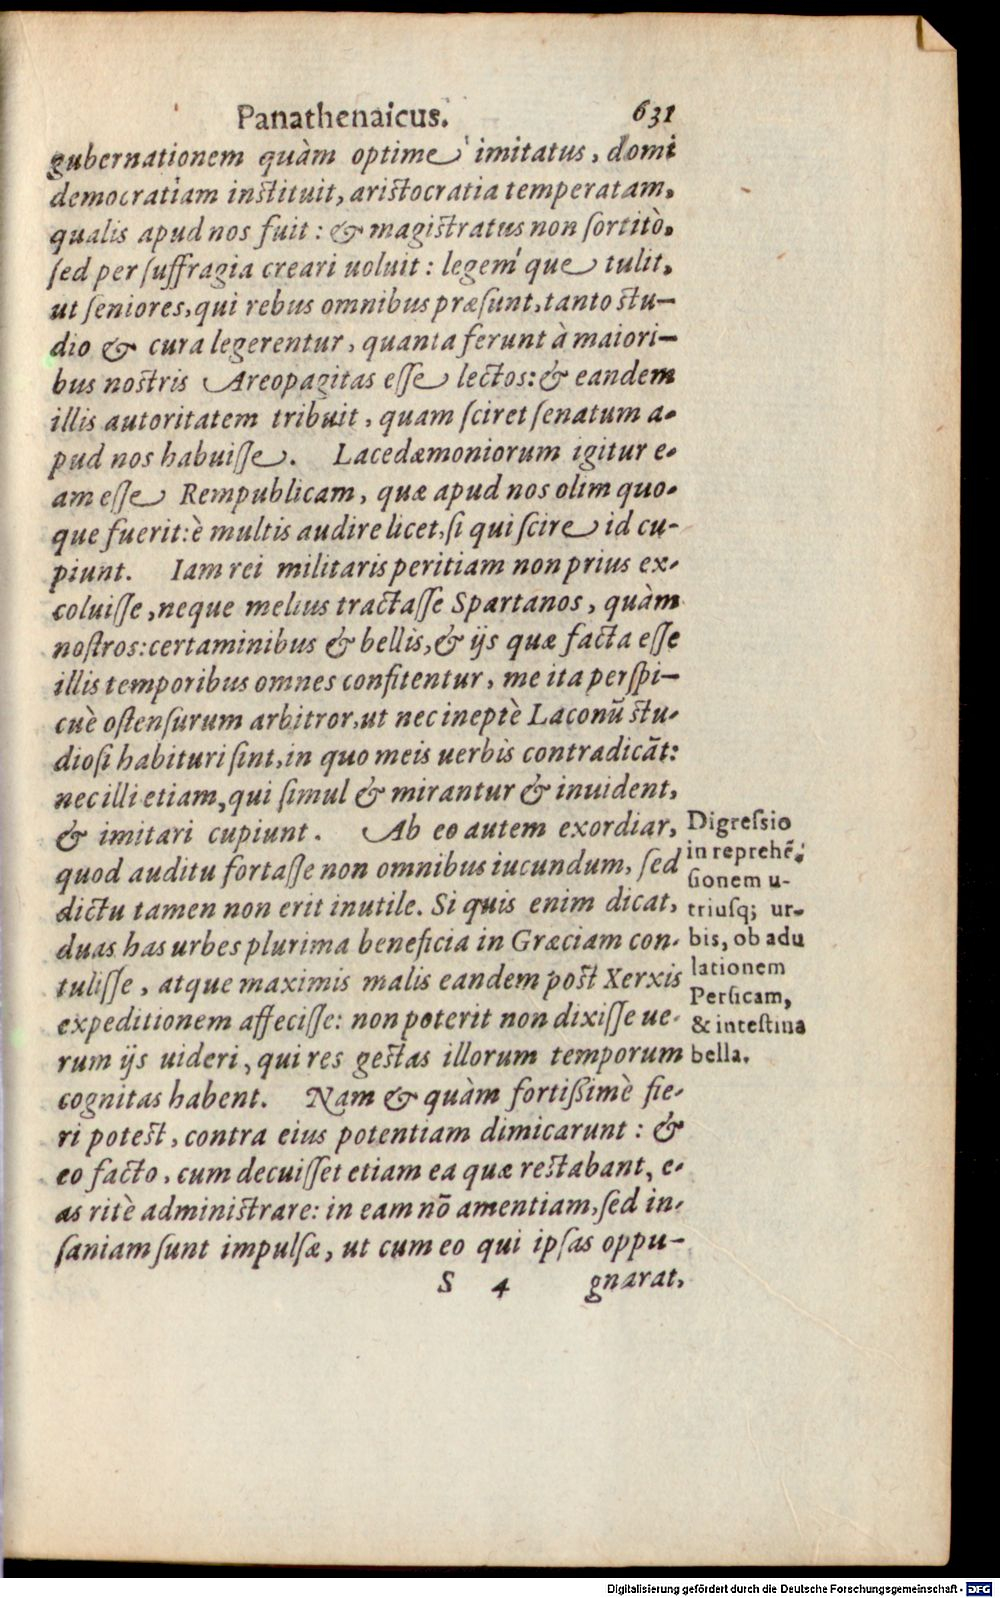 Panathenaicus. 631
gubernationem quàm optime imitatus, domi
democratiam instituit, aristocratia temperatam,
qualis apud nos fuit: & magistratus non sortitò,
sed per suffragia creari uoluit: legem'que tulit,
ut seniores, qui rebus omnibus præsunt, tanto stu-
dio & cura legerentur, quanta ferunt à maiori-
bus nostris Areopagitas esse lectos: & eandem
illis autoritatem tribuit, quam sciret senatum a-
pud nos habuisse. Lacedæmoniorum igitur e-
am esse Rempublicam, quæ apud nos olim quo-
que fuerit: è multis audire licet, si qui scire id cu-
piunt. Iam rei militaris peritiam non prius ex-
coluisse, neque melius tractasse Spartanos, quàm
nostros: certaminibus & bellis, & ijs quæ facta esse
illis temporibus omnes confitentur, me ita perspi-
cuè ostensurum arbitror, ut nec ineptè Laconũ stu-
diosi habituri sint, in quo meis uerbis contradicãt:
nec illi etiam, qui simul & mirantur & inuident,
& imitari cupiunt. Ab eo autem exordiar,
quod auditu fortasse non omnibus iucundum, sed
dictu tamen non erit inutile. Si quis enim dicat,
duas has urbes plurima beneficia in Græciam con-
tulisse, atque maximis malis eandem post Xerxis
expeditionem affecisse: non poterit non dixisse ue-
rum ijs uideri, qui res gestas illorum temporum
cognitas habent. Nam & quàm fortißimè fie-
ri potest, contra eius potentiam dimicarunt: &
eo facto, cum decuisset etiam ea quæ restabant, e-
as ritè administrare: in eam nõ amentiam, sed in-
saniam sunt impulsæ, ut cum eo qui ipsas oppu-
S 4 gnarat,
Digressio
in reprehẽ-
sionem u-
triusq; ur-
bis, ob adu
lationem
Persicam,
& intestina
bella.
Digitalisierung gefördert durch die Deutsche Forschungsgemeinschaft - DFG